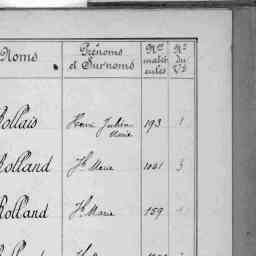 Noms Prénoms et Surnoms Nos matri- cules No du Vt
Rollais Henri Julien Marie 193 1
Rolland Jh Marie 1041 3
Rolland Jh Marie 159